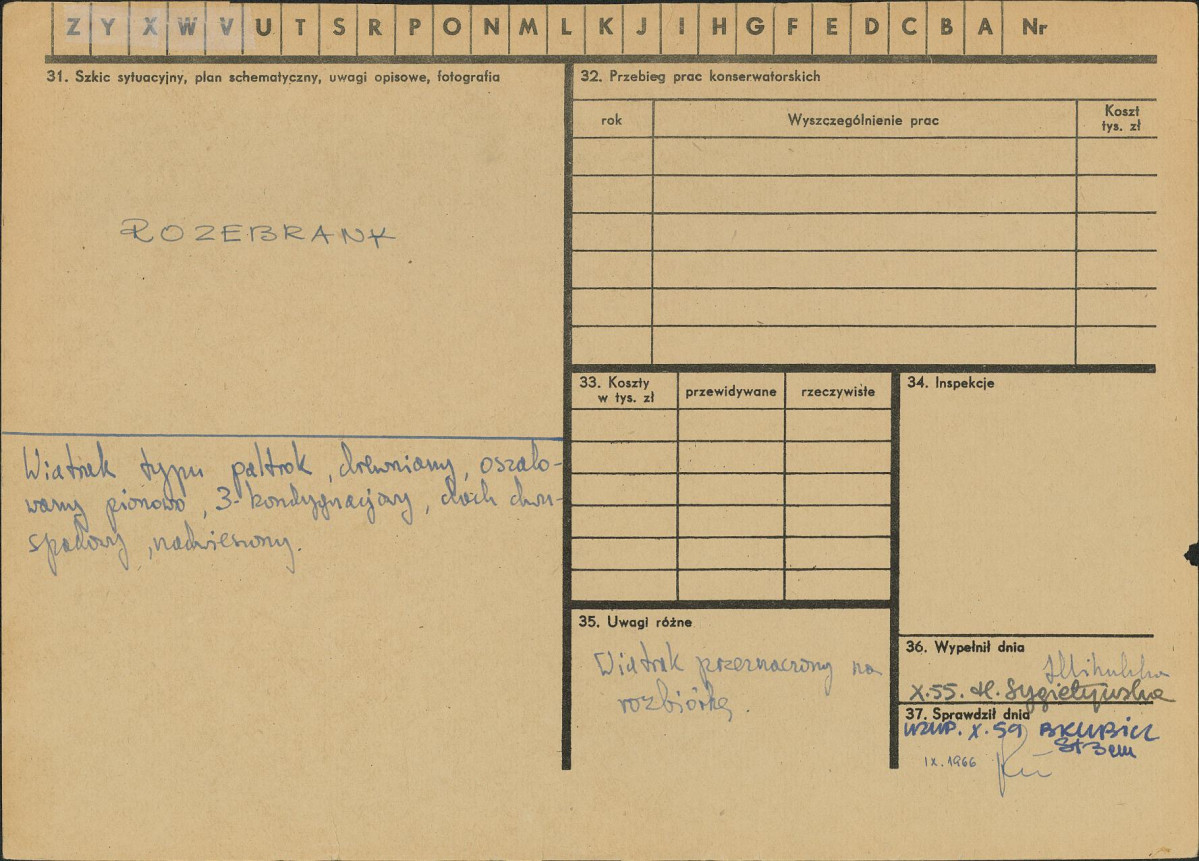 Z Y X W V U T S R P O N M L K J I H G F E D C B A Nr
31. Szkic sytuacyjny, plan schematyczny, uwagi opisowe, fotografia
ROZEBRANY
Wiatrak typu paltrok, drewniany, oszalo-
wany pionowo, 3-kondygnacjowy, dach dwu-
spadowy, nadwieszony.
32. Przebieg prac konserwatorskich
rok Wyszczególnienie prac Koszt
tys. zł
33. Koszty
w tys. zł przewidywane rzeczywiste
34. Inspekcje
35. Uwagi różne
Wiatrak przeznaczony na
rozbiórkę.
36. Wypełnił dnia
X.55. H. Sygietyńska
37. Sprawdził dnia
UZUP. X. 59
IX. 1966